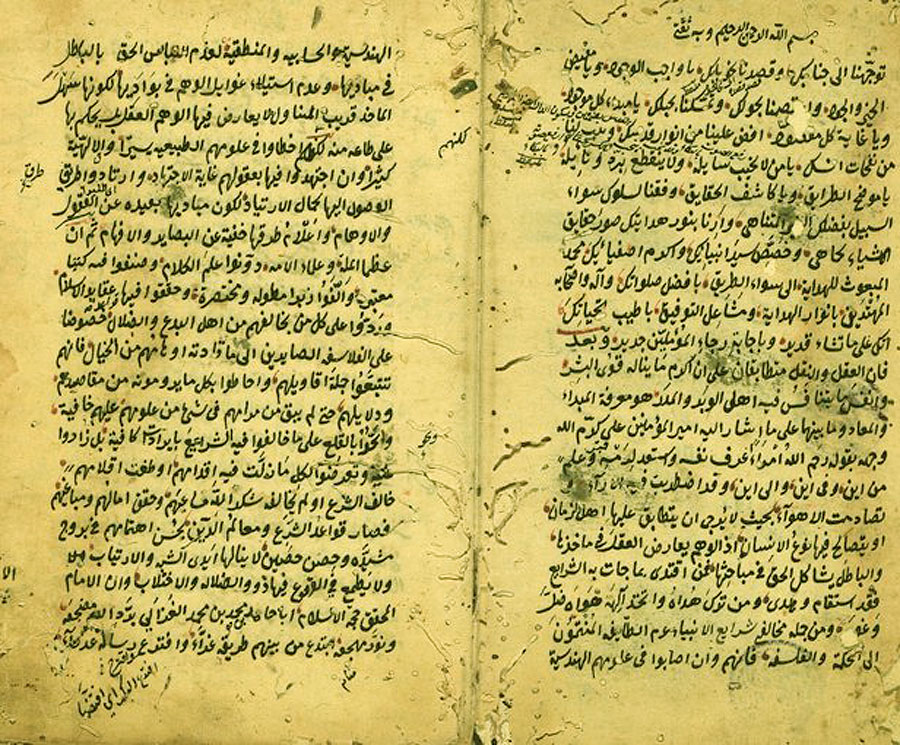 بسم الله الرحمن الرحيم وبه ثقتي
توجهنا الى جنابك وقصدنا نحو بابك يا واجب الوجود ويا مفيض
الخير والجود واعتصمنا بحولك وتمسكنا بحبلك يا مبدأ كل موجود
ويا غاية كل مقصود افض علينا من انوار قدسك
من نفحات انسك يا من لا يخيب سائله ولا ينقطع بره ونايله
يا موضح الطرايق ويا كاشف الحقايق وفقنا لسلوك سواء
السبيل بفضلك المتناهي وارنا بنور هدايتك صور حقايق
الاشياء كما هي وخصص سيد انبيائك واكرم اصفيائك محمد
المبعوث للهداية الى سواء الطريق بافضل صلواتك وآله واصحابه
المهتدين بانوار الهداية ومشاعل التوفيق باطيب تحياتك
انك على ما تشاء قدير وباجابة رجاء المؤملين جدير وبعد
فان العقل والنقل متطابقان على ان اكرم ما يناله قوى البشر
وانفس ما يتنافس فيه اهل الوبر والمدر هو معرفة المبدأ
والمعاد وما بينهما على ما اشار اليه امير المؤمنين على كرم الله
وجهه بقوله رحم الله امرأ عرف نفسه واستعد لرمسه وعلم
من اين وفي اين والى اين وقد اضطربت فيه الآراء و
تصادمت الاهواء بحيث لا يرجى ان يتطابق عليها اهل الزمان
او يتصالح فيها نوع الانسان اذ الوهم يعارض العقل في مآخذها
والباطل يشاكل الحق في مباحثها فمن اقتدى بما جاءت به الشرايع
فقد استقام وهدى ومن ترك هداه واتخذ الهه هواه ضل
وغوى ومن جملة مخالفي شرايع الانبياء عم الطايفة المنتمون
الى الحكمة والفلسفة فانهم وان اصابوا في علومهم الهندسية
الهندسية والحسابية والمنطقية لعدم التباس الحق بالباطل
في مباديها وعدم استيلاء غوايل الوهم في بواديها لكونها سهل
المأخذ قريب المتناول لا يعارض فيها الوهم العقل بل يحكم بها
على طاعة منه لكنهم اخطاوا في علومهم الطبيعية يسيرا والالهية
كثيرا وان اجتهدوا فيها بعقولهم غاية الاجتهاد وارتادوا طريق
الوصول اليها كمال الارتياد لكون مباديها بعيدة عن العقول
والاوهام واعلام طرقها خفية عن البصاير والافهام ثم ان
عظماء الملة وعلماء الامة دونوا علم الكلام وصنفوا فيه كتبا
معتبرة والفوا زبرا مطولة ومختصرة وحققوا فيها عقايد الاسلام
وردوا على كل من يخالفهم من اهل البدع والضلال خصوصا
على الفلاسفة الصايرين الى ما قادته اوهامهم من الخيال فانهم
تتبعوا جملة اقاويلهم واحاطوا بكل ما يرومونه من مقاصدهم
ودلايلهم حتى لم يبق من مرامهم في شئ من علومهم عليهم خافية
واتوا بالقلع على ما خالفوا فيه الشرايع بايرادات كافية بل زادوا
عليه وتعرضوا لكل ما زلت فيه اقدامهم وطغت اقلامهم
خالف الشرع او لم يخالف شكر الله مساعيهم وحقق امالهم ومباغيهم
فصار قواعد الشرع ومعالم الدين بحسن اهتمامهم في بروج
مشيدة وحصن حصين لا ينالها ايدى الشر والارتياب
ولا يطمع في الوقوع فيها ذوو الضلالة والاختلاب وان الامام
المحقق حجة الاسلام ابا حامد محمد بن محمد الغزالي برد الله مضجعه
ونور مهجعه ابتدع من بينهم طريقة غراء واخترع رسالة عذراء